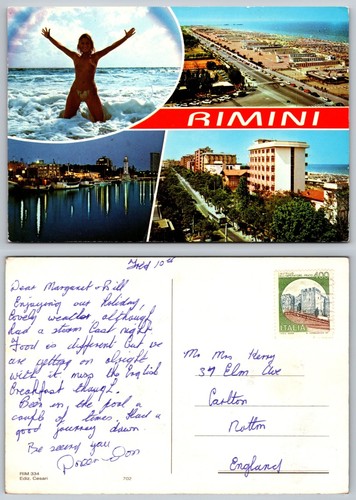 RIMINI
Wed 10th
Dear Margaret & Bill
Enjoying our holiday,
lovely weather although
had a storm last night
Food is different but we
are getting on alright
with it miss the English
breakfast though.
Been in the pool a
couple of times. Had a
good journey down.
Be seeing you
Don
Mr Mrs
39 Elm Ave
Carlton
Nottm
England
400
ITALIA
RIM 334
Ediz. Cesari